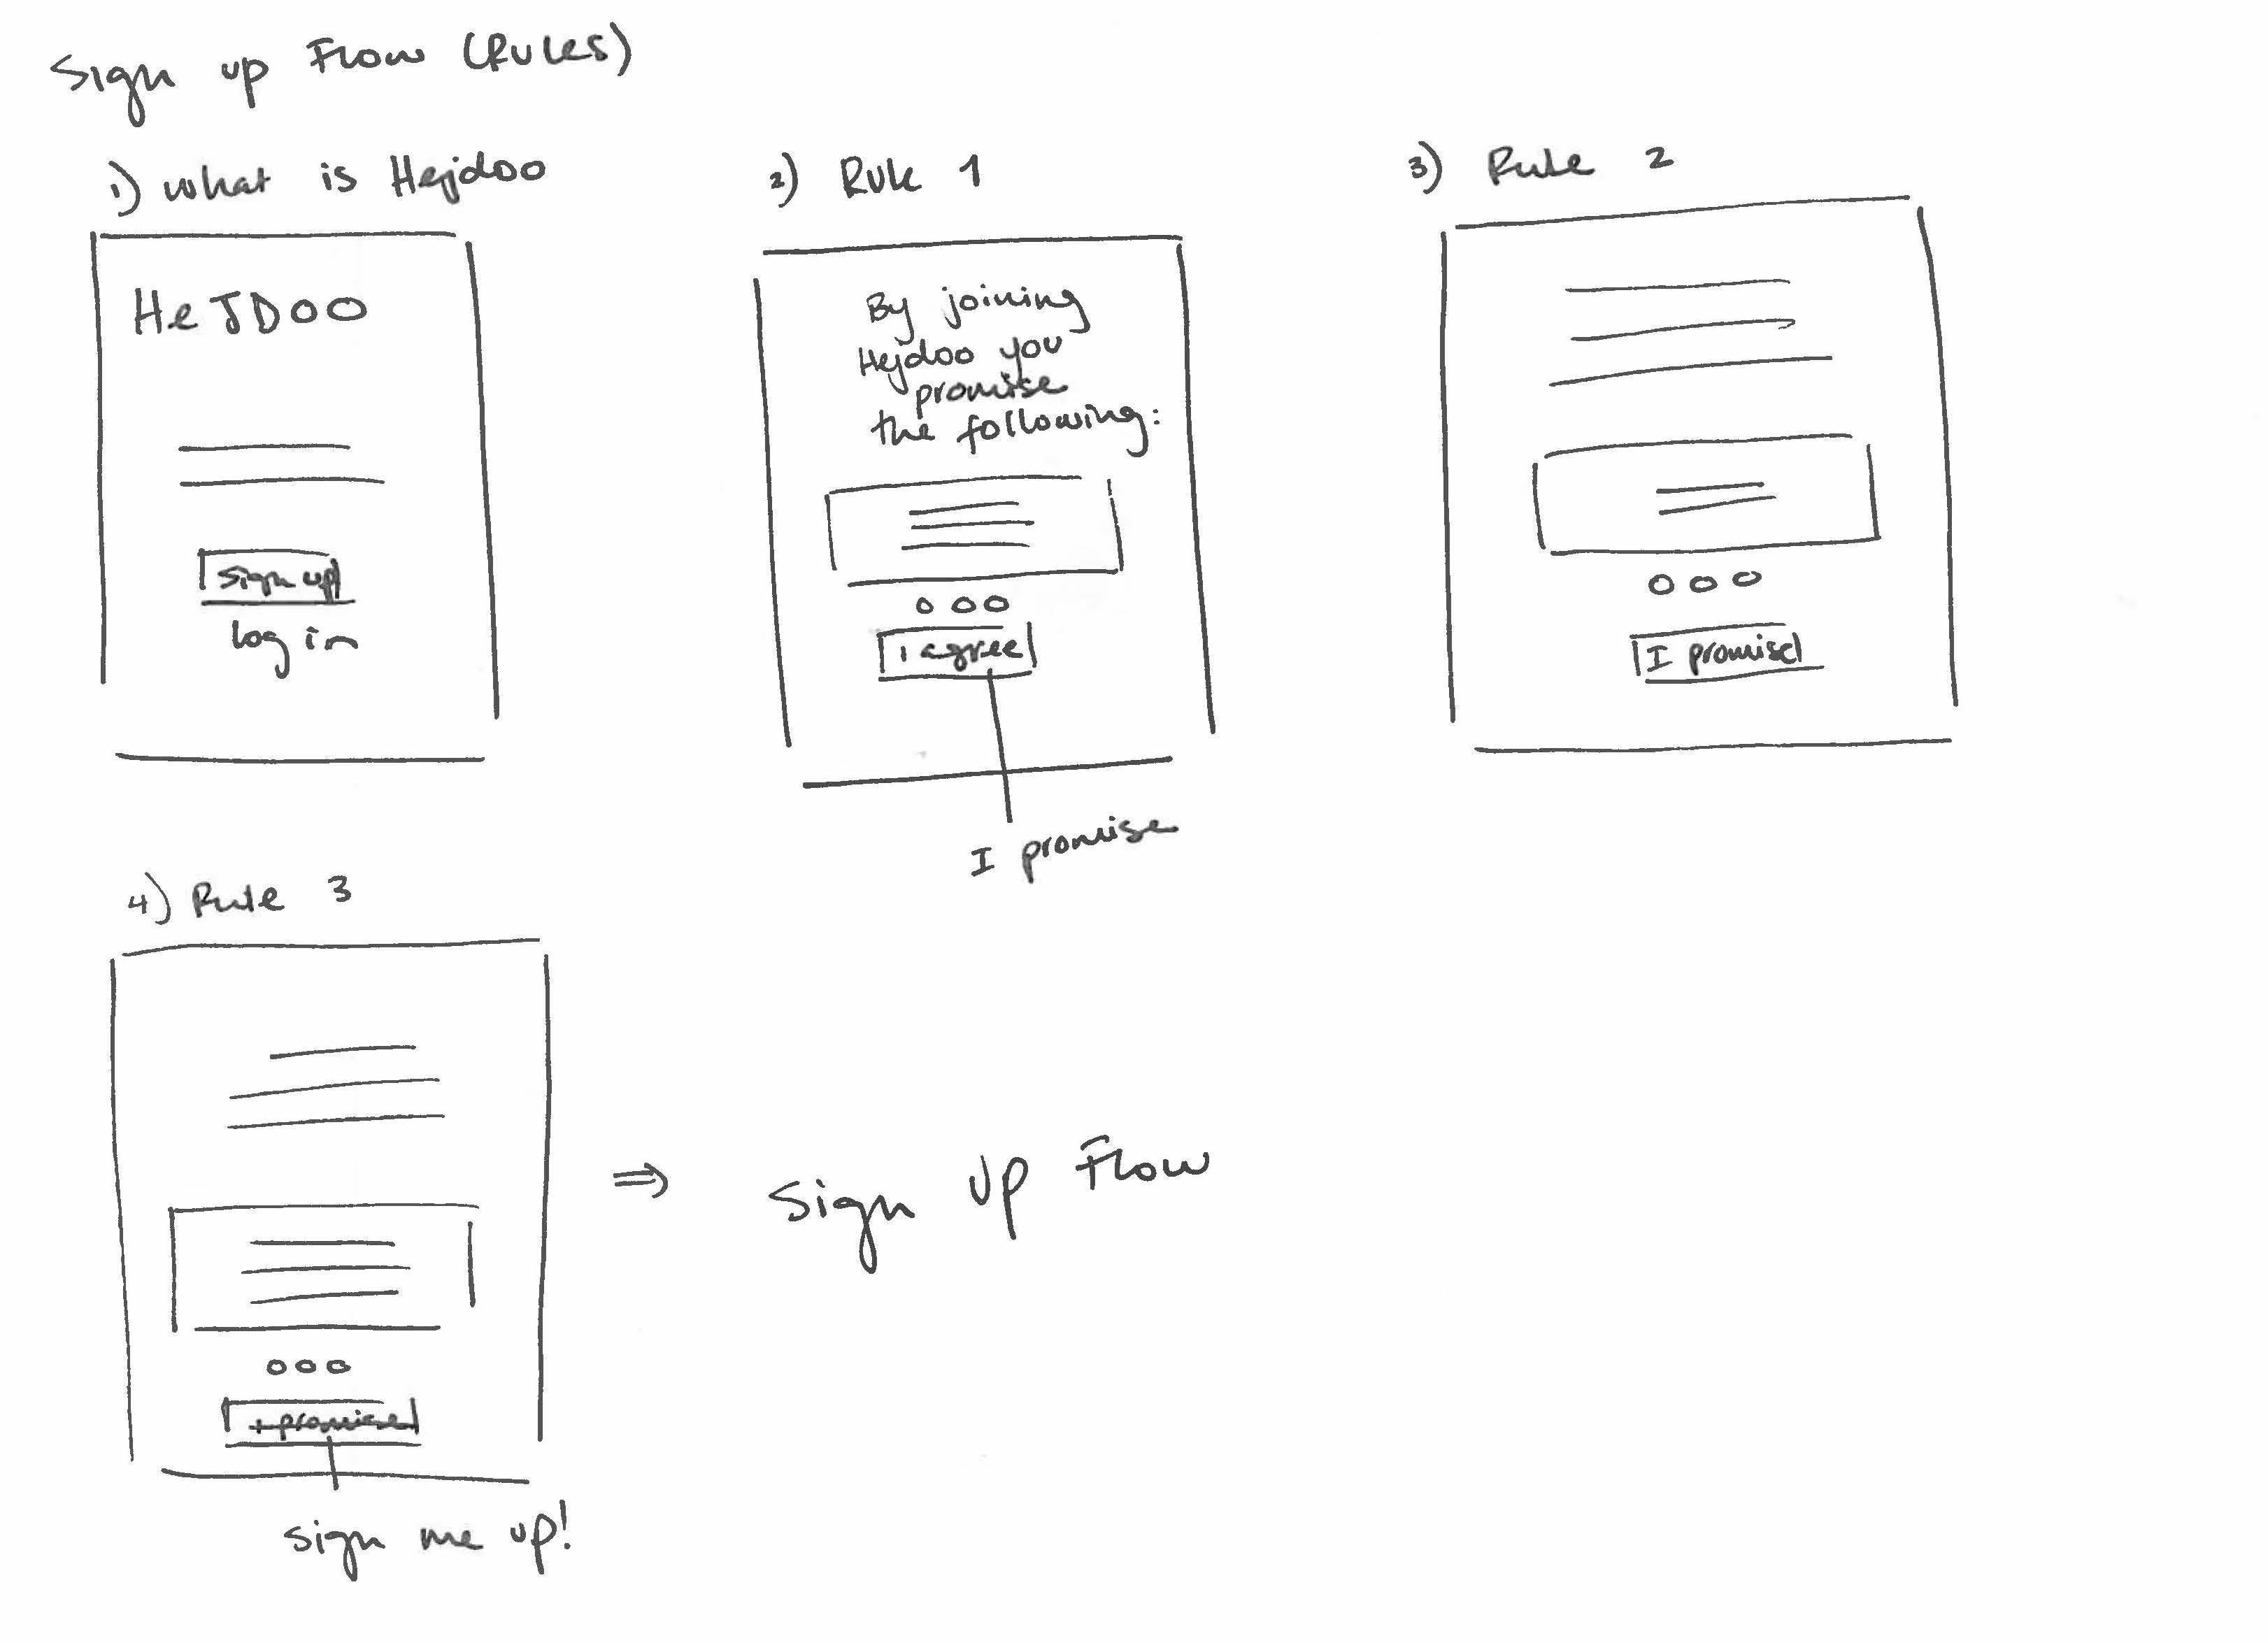 Sign up Flow (Rules)
1) what is Hejdoo
HeJDOO
sign up
log in
2) Rule 1
By joining
Hejdoo you
promise
the following:
i agree
I promise
3) Rule 2
I promise
4) Rule 3
i promise
sign me up!
⇒ Sign up Flow